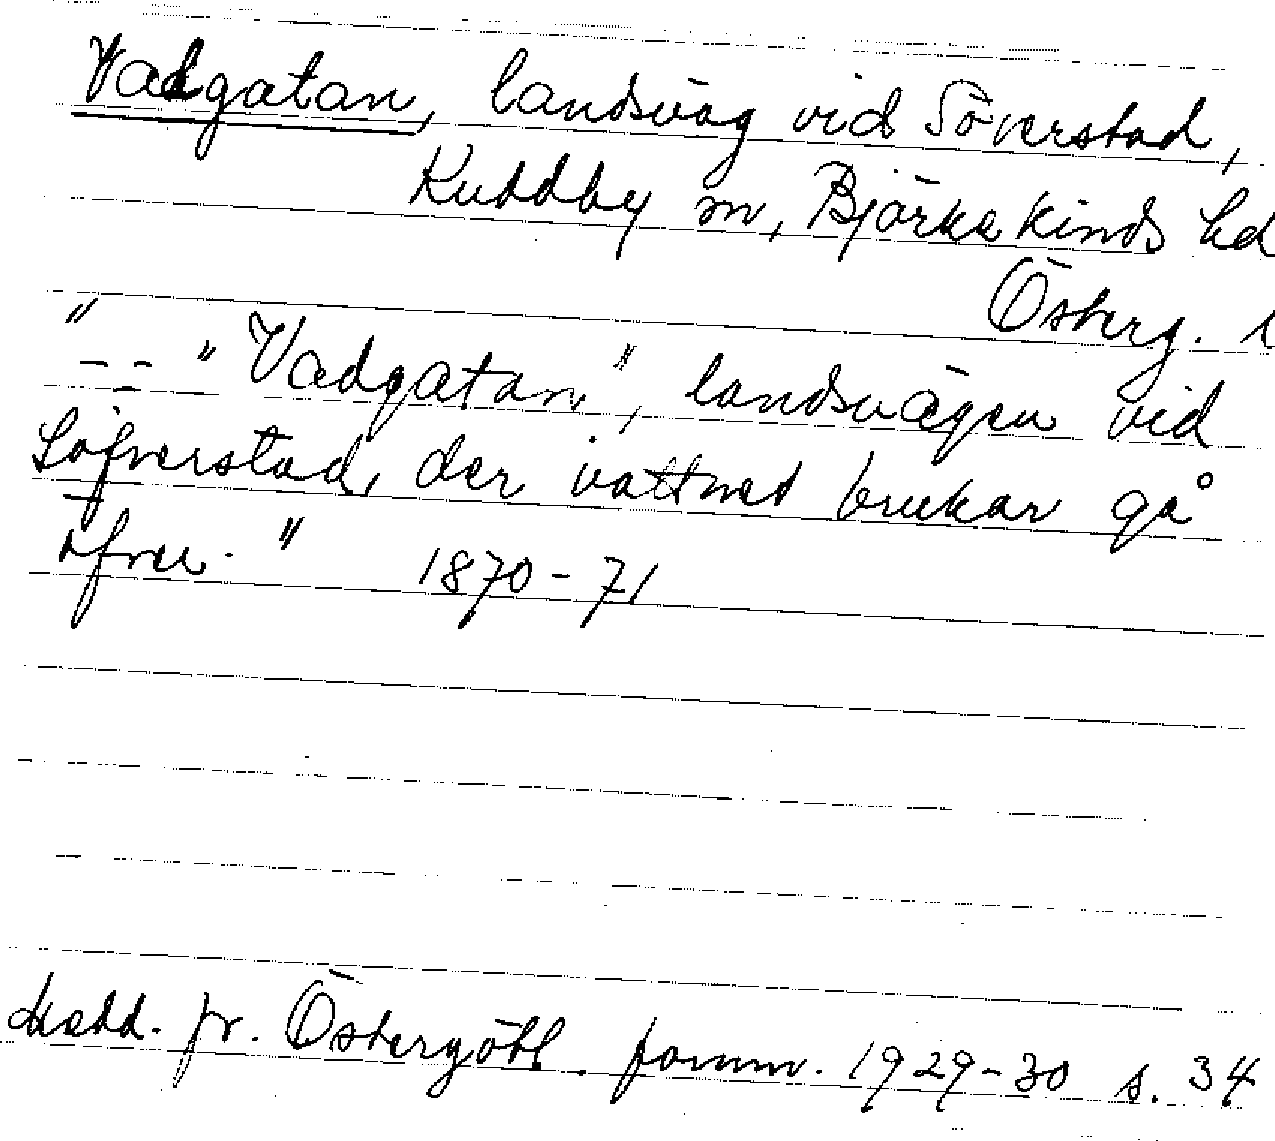 Vadgatan, landsväg vid Söverstad,
Kuddby sn, Björkekinds hd
Österg. l
" -- " Vadgatan", landsvägen vid
Söfverstad, der vattnet brukar gå
öfver. " 1870-71
Medd. fr. Östergötl. fornm. 1929-30 s. 34